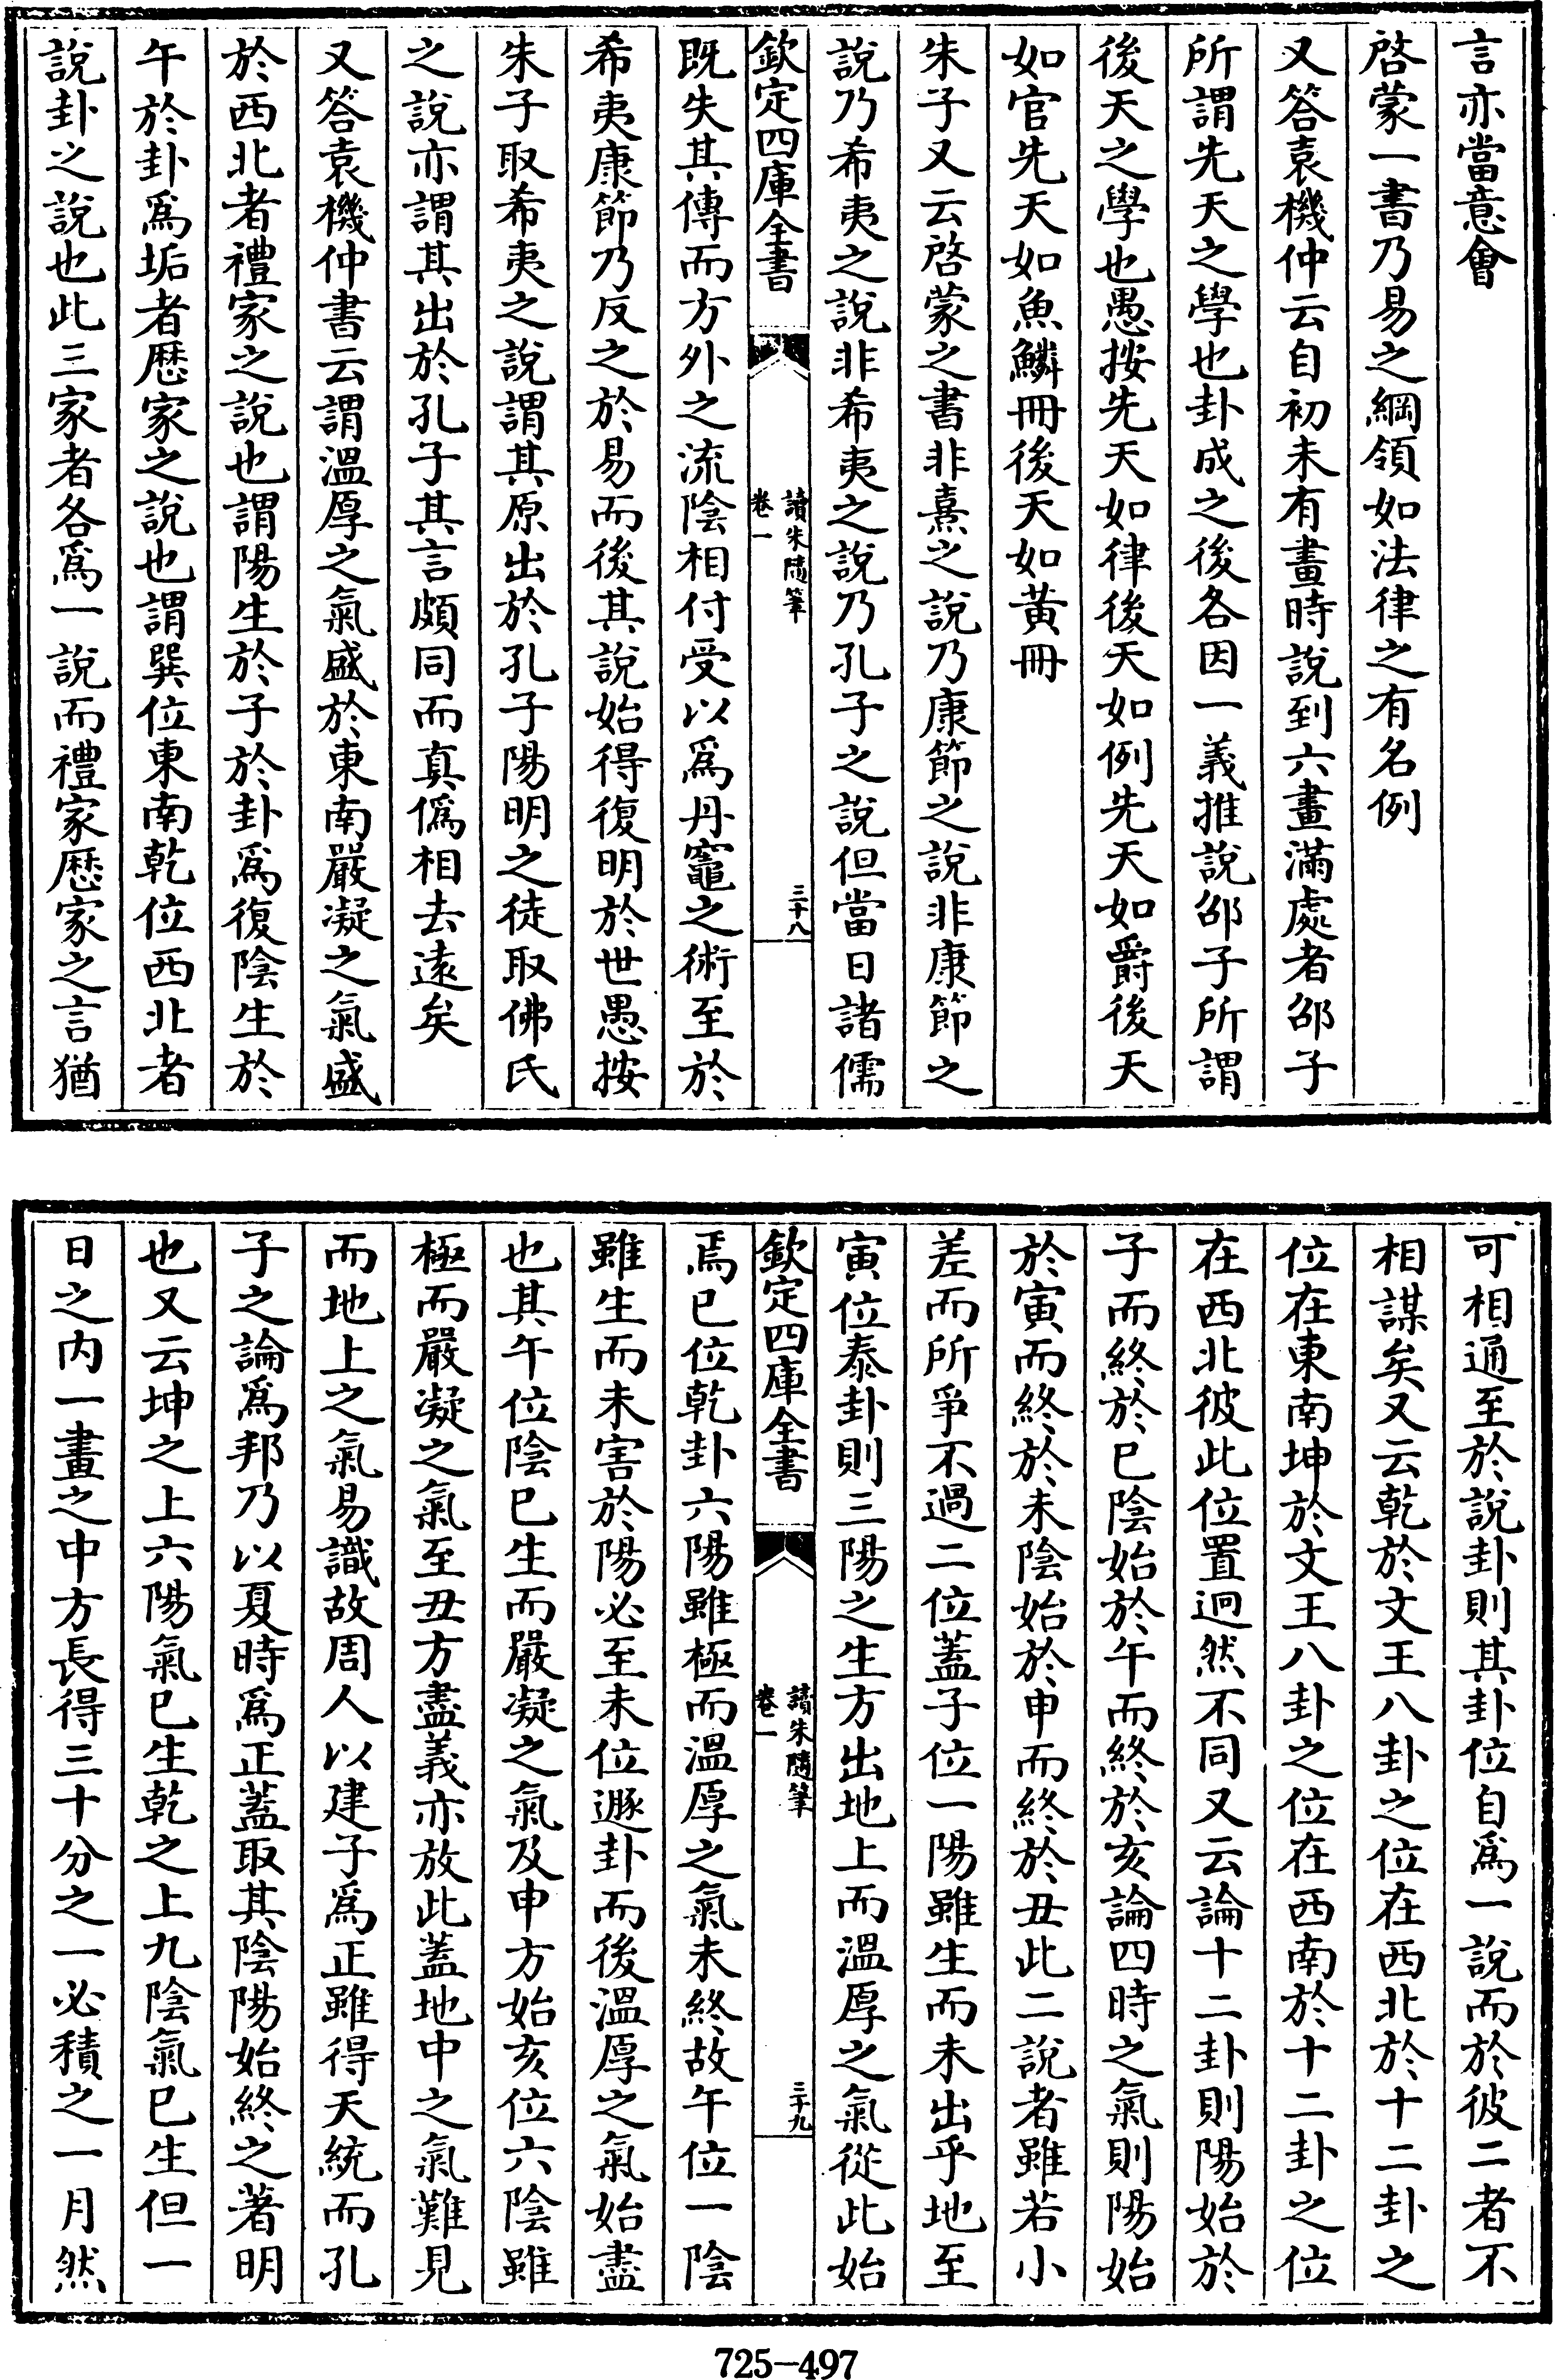 言亦當意會
啓蒙一書乃易之綱領如法律之有名例
又答袁機仲云自初未有畫時說到六畫滿處者邵子
所謂先天之學也卦成之後各因一義推說邵子所謂
後天之學也愚按先天如律後天如例先天如爵後天
如官先天如魚鱗冊後天如黃冊
朱子又云啓蒙之書非熹之說乃康節之說非康節之
說乃希夷之說非希夷之說乃孔子之說但當日諸儒
欽定四庫全書
讀朱隨筆
卷一
三十八
既失其傳而方外之流陰相付受以爲丹竈之術至於
希夷康節乃反之於易而後其說始得復明於世愚按
朱子取希夷之說謂其原出於孔子陽明之徒取佛氏
之說亦謂其出於孔子其言頗同而真僞相去遠矣
又答袁機仲書云謂溫厚之氣盛於東南嚴凝之氣盛
於西北者禮家之說也謂陽生於子於卦爲復陰生於
午於卦爲垢者歴家之說也謂巽位東南乾位西北者
說卦之說也此三家者各爲一說而禮家歴家之言猶
可相通至於說卦則其卦位自爲一說而於彼二者不
相謀矣又云乾於文王八卦之位在西北於十二卦之
位在東南坤於文王八卦之位在西南於十二卦之位
在西北彼此位置迥然不同又云論十二卦則陽始於
子而終於巳陰始於午而終於亥論四時之氣則陽始
於寅而終於未陰始於申而終於丑此二說者雖若小
差而所爭不過二位蓋子位一陽雖生而未出乎地至
寅位泰卦則三陽之生方出地上而溫厚之氣從此始
欽定四庫全書
讀朱隨筆
卷一
三十九
焉巳位乾卦六陽雖極而溫厚之氣未終故午位一陰
雖生而未害於陽必至未位遯卦而後溫厚之氣始盡
也其午位陰已生而嚴凝之氣及申方始亥位六陰雖
極而嚴凝之氣至丑方盡義亦放此蓋地中之氣難見
而地上之氣易識故周人以建子爲正雖得天統而孔
子之論爲邦乃以夏時爲正蓋取其陰陽始終之著明
也又云坤之上六陽氣已生乾之上九陰氣已生但一
日之内一畫之中方長得三十分之一必積之一月然
725-497